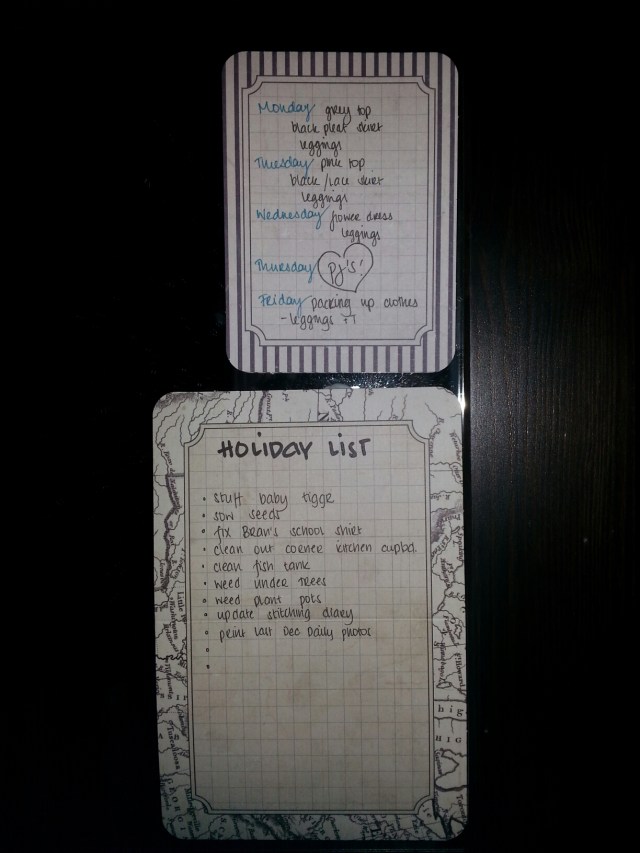 Monday grey top
black pleat skirt
leggings
Tuesday pink top
black/lace skirt
leggings
Wednesday flower dress
leggings
Thursday PJ's!
Friday packing up clothes
- leggings
HOLIDAY LIST
• stuff baby tigge
• sow seeds
• fix Bean's school shirt
• clean out corner kitchen cupbd.
• clean fish tank
• weed under trees
• weed plant pots
• update stitching diary
• print last Dec Daily photos
•
•